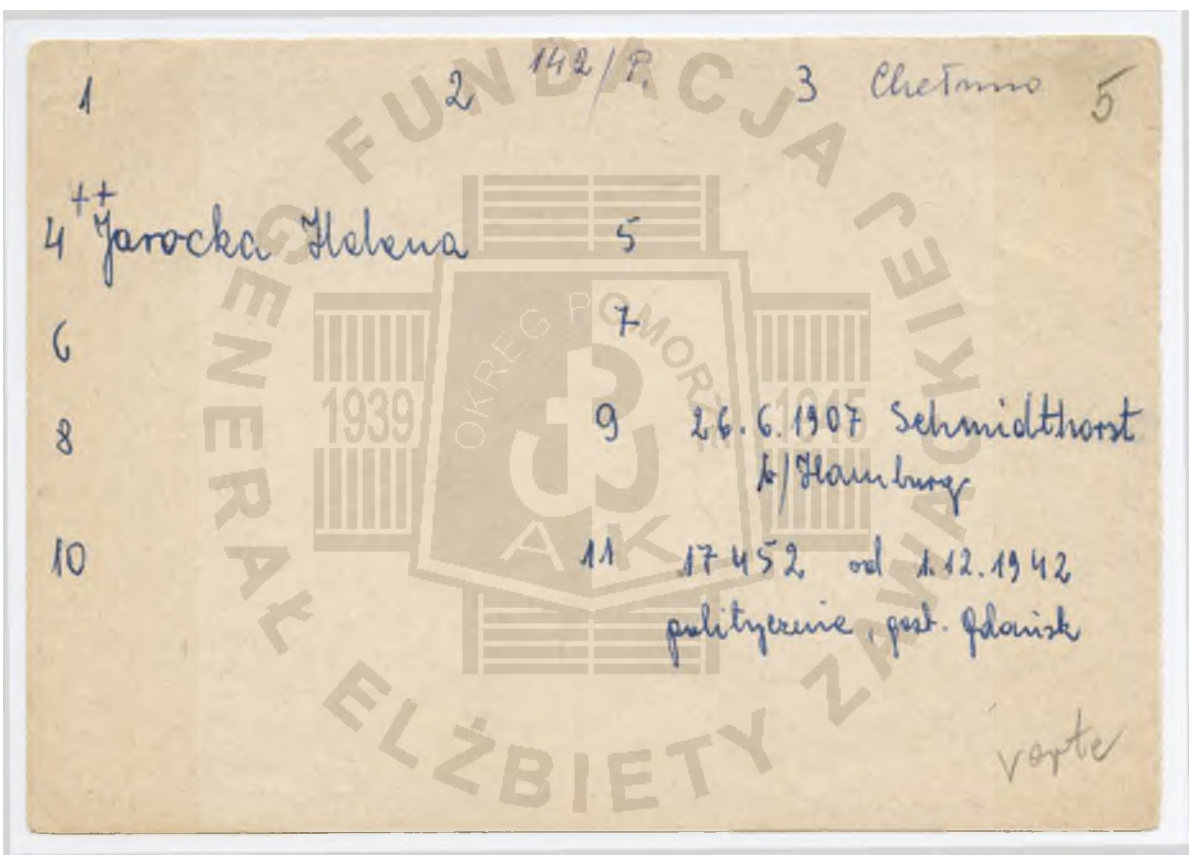 1 2 142/P. 3 Chełmno 5
++
4 Jarocka Helena 5
6 7
8 9 26.6.1907 Schmidthorst
b/Hamburg
10 11 17452 od 1.12.1942
politycznie, gest. Gdańsk
verte
FUNDACJA GENERAŁ ELŻBIETY ZAWACKIEJ
OKRĘG POMORZE
1939 1945
AK